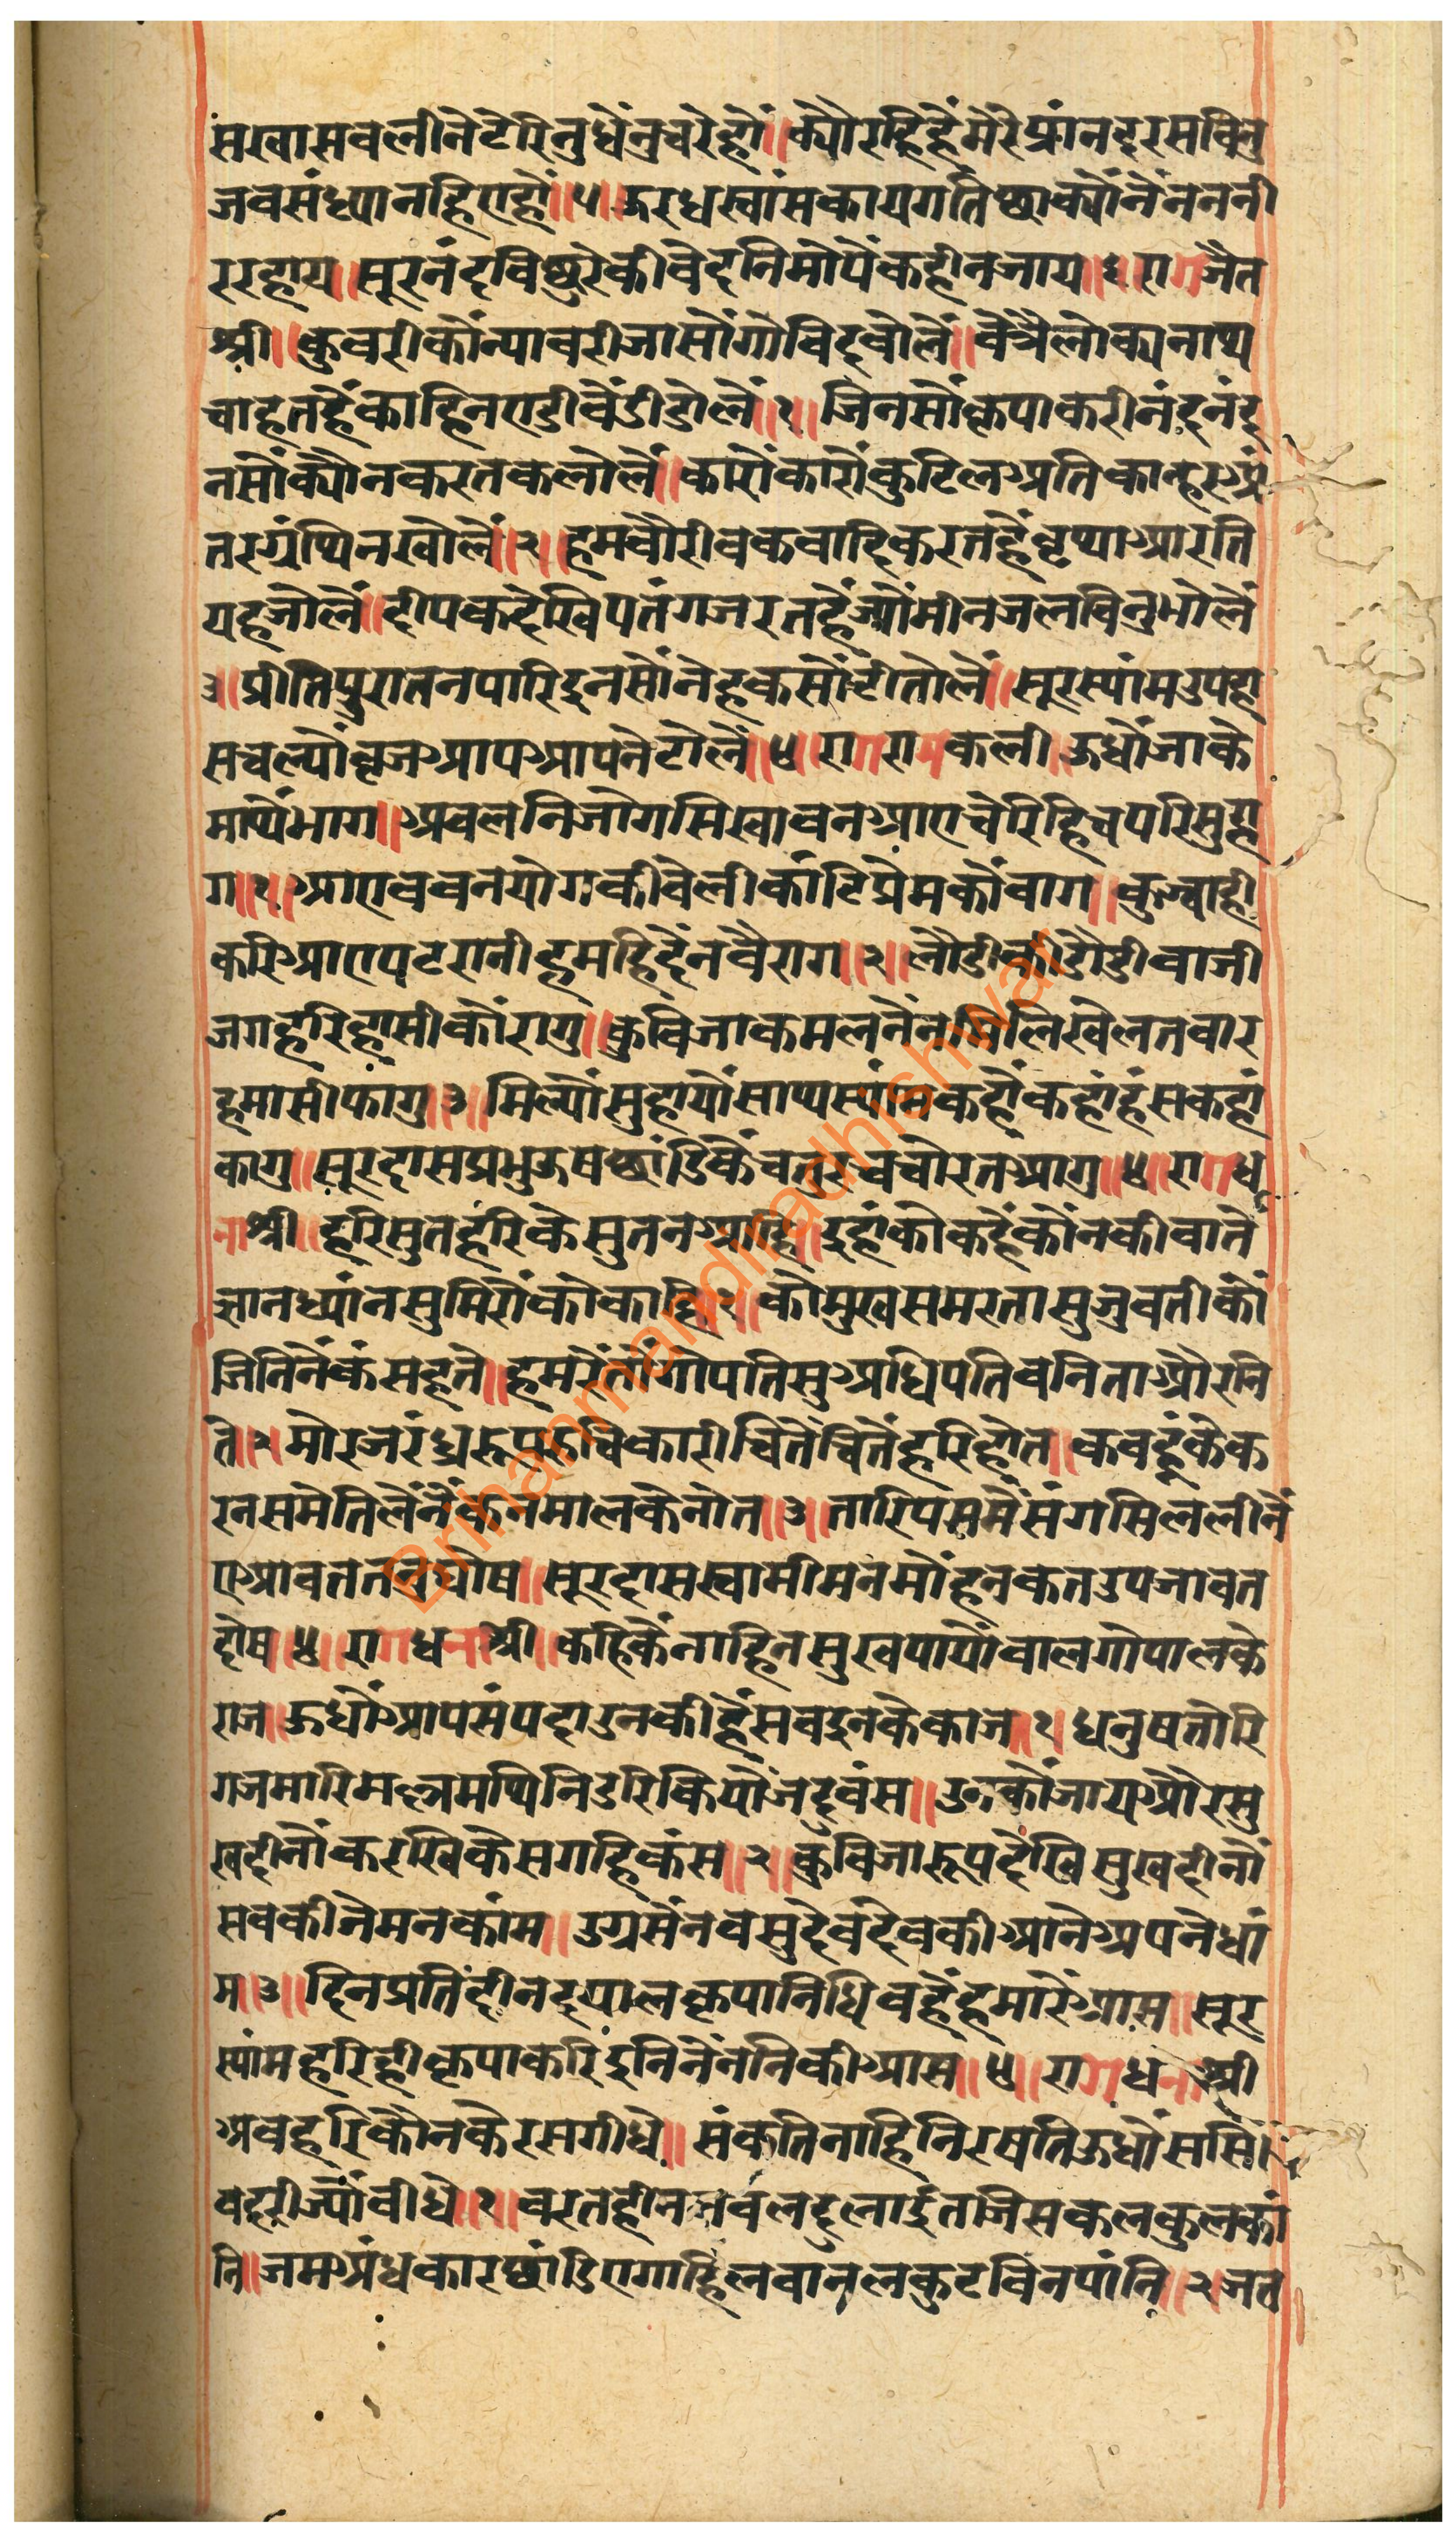 संखा सब लीने टेरि नु धेंनु चरे हो ॥ क्यौ रहि हैं मेरे प्रांन दरस बिनु
जब संध्या नहि एहो ॥५॥ ऊरध स्वांस काय गति थाक्यौ नेंनन नी
र रहाय ॥ सूर नंद बिछुरे की बेदनि मोपें कही न जाय ॥६॥ राग जैत
श्री ॥ कुबरी कौं न्याव री जासों गोविंद बोलें ॥ वे त्रैलोक्य नाथ
चाहत हैं काहि न एडी बेंडी डोलें ॥१॥ जिन सौं कृपा करी नंद नंद
न सौं क्यौ न करत कलोलें ॥ कारों कारों कुटिल अति कान्हर अं
तर ग्रंथि न खोलें ॥२॥ हम बौरी बकबादि करत हैं वृथा आरति
यह जोलें ॥ दीपक देखि पतंग जरत हैं ज्यौं मीन जल बिनु भोलें
३॥ प्रीति पुरातन पारि इन सौं नेह कसौंटी तोलें ॥ सूर स्यांम उपहा
स चल्यौ बृज आप आपने टोलें ॥४॥ राग रामकली ॥ ऊधौं जाके
माथें भाग ॥ अबलनि जोग सिखावन आए चेरिहि चपरि सुहा
ग ॥१॥ आए बचन योग की बेली काटि प्रेम कौं बाग ॥ कुब्जाही
करि आए पटरानी हमहि दैन बैराग ॥२॥ लौडी की डौडी बाजी
जग हरि हासी कौ रागु ॥ कुबिजा कमल नेंन मिलि खेलत बार
हमासी फागु ॥३॥ मिल्यौं सुहायौं साथ स्यांम कहां कहां हंस कहां
कागु ॥ सूरदास प्रभु ऊष छांडि कें चतुर चचोरत आगु ॥४॥ राग ध
नाश्री ॥ हरि सुत हरि के सुत न आहि ॥ इहां को कहें कौंन की बातें
ज्ञान ध्यांन सुमिरौं को काहि ॥१॥ को मुख समरता सु जुबती कौं
जिति नें कंस हते ॥ हमरें तौं गोपति सु अधिपति बनिता और नि
ते ॥२॥ मोरज रंध्र रूप रुचिकारी चितें चितें हरि होत ॥ कबहूं के क
रन समेति लें नैंक न माल के नोत ॥३॥ तारिप समें संग सिल लीनें
ए आवत तन घोष ॥ सूरदास स्वामी मन मोंहन कत उपजावत
दोष ॥४॥ राग धनाश्री ॥ कहि कें नाहिन सुख पायौं बाल गोपाल के
राज ॥ ऊधौं आप संपदा उनकी हें सब इनके काज ॥१॥ धनुष तोरि
गज मारि मल्ल मथि निडरि कियौं जदुबंस ॥ उनकौं जाय और सु
ख दीनौं करखि केस गहि कंस ॥२॥ कुबिजा रूप देखि सुख दीनौं
सबकीने मन कांम ॥ उग्रसेंन बसुदेव देवकी आने अपने धां
म ॥३॥ दिन प्रति दीन दयाल कृपानिधि बहें हमारें आस ॥ सूर
स्यांम हरि ही कृपा करि इनि नेंननि की आस ॥४॥ राग धनाश्री
अब हरि कौन के रस गीधे ॥ संकति नाहिं निरषति ऊधौं ससि
बदरी ज्यौं बीधे ॥१॥ बरतहीन सबल दलनाई तजि सकल कुल कां
नि ॥ जम अंधकार छांडि ए गहि लवानल कुट बिन पांनि ॥२॥ जत